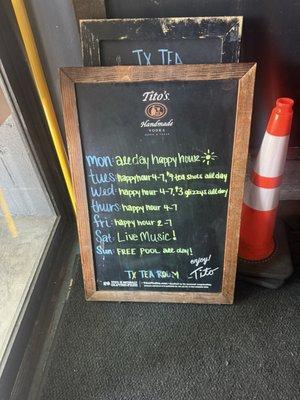 TX TEA
Tito's
Handmade
VODKA
mon: all day happy hour
tues: happy hour 4-7, $7 tea shots all day
Wed: happy hour 4-7, $3 glizzys all day
thurs: happy hour 4-7
fri: happy hour 2-7
Sat: Live Music!
Sun: FREE POOL all day!
enjoy!
TX TEA ROOM
Tito